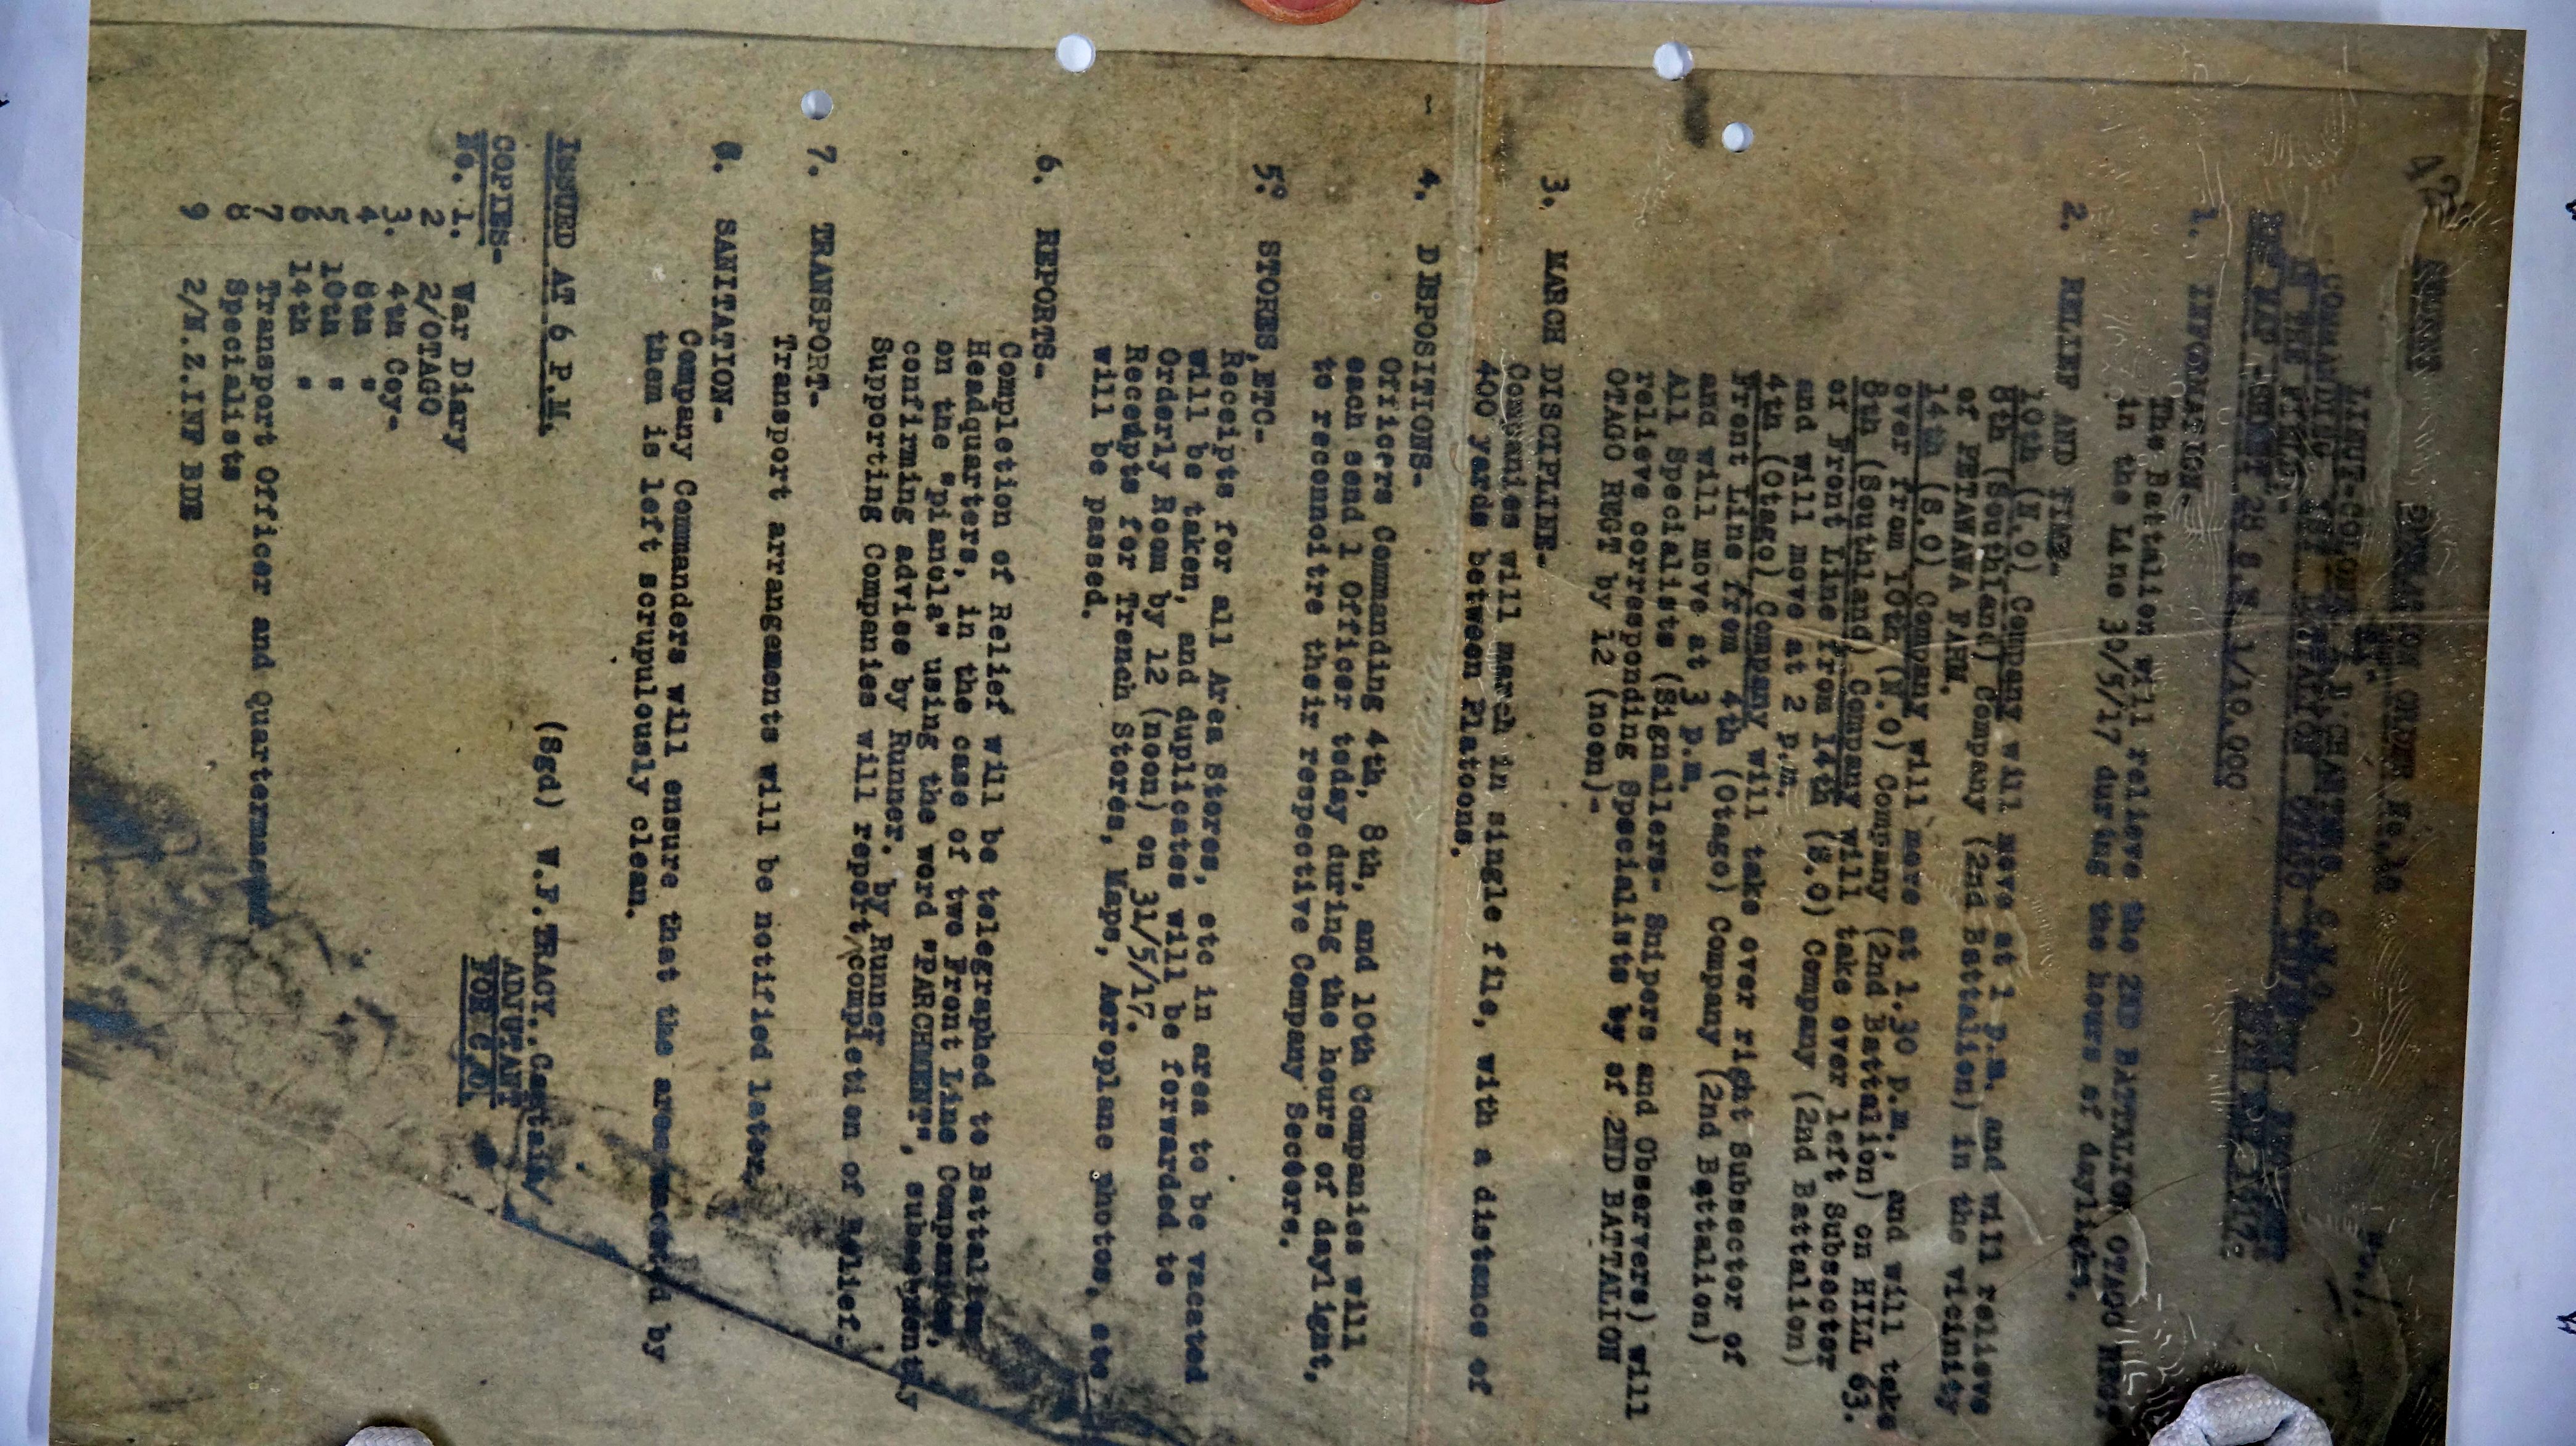 SECRET OPERATION ORDER No.
LIEUT-COLONEL A.B. CHARTERS, C.M.G.
COMMANDING 1ST BATTALION OTAGO
IN THE FIELD-
REF MAP SHEET 28 S.W. 1/10,000
1. INFORMATION-
The Battalion will relieve the 2ND BATTALION OTAGO REGT
in the Line 30/5/17 during the hours of daylight.
2. RELIEF AND TIME-
10th (N.O) Company will move at 1 p.m. and will relieve
8th (Southland) Company (2nd Battalion) in the vicinity
of PETAWAWA FARM.
14th (S.O) Company will move at 1.30 p.m., and will take
over from 10th (N.O) Company (2nd Battalion) on HILL 63.
8th (Southland) Company will take over left Subsector
of Front Line from 14th (S.O) Company (2nd Battalion)
and will move at 2 p.m.
4th (Otago) Company will take over right Subsector of
Front Line from 4th (Otago) Company (2nd Battalion)
and will move at 3 p.m.
All Specialists (Signallers- Snipers and Observers) will
relieve corresponding Specialists by of 2ND BATTALION
OTAGO REGT by 12 (noon)-
3. MARCH DISCIPLINE-
Companies will march in single file, with a distance of
400 yards between Platoons.
4. DISPOSITIONS-
Officers Commanding 4th, 8th, and 10th Companies will
each send 1 Officer today during the hours of daylight,
to reconnoitre their respective Company Sectors.
5. STORES,ETC-
Receipts for all Area Stores, etc in area to be vacated
will be taken, and duplicates will be forwarded to
Orderly Room by 12 (noon) on 31/5/17.
Receipts for Trench Stores, Maps, Aeroplane photos, etc
will be passed.
6. REPORTS-
Completion of Relief will be telegraphed to Battalion
Headquarters, in the case of two Front Line Companies,
on the "pianola" using the word "PARCHMENT", subsequently
confirming advice by Runner.
by Runner
Supporting Companies will report completion of Relief.
7. TRANSPORT-
Transport arrangements will be notified later.
8. SANITATION-
Company Commanders will ensure that the area vacated by
them is left scrupulously clean.
ISSUED AT 6 P.M.
(Sgd) W.F.TRACY. Captain/
ADJUTANT
FOR C.O.
COPIES-
No. 1. War Diary
2 2/OTAGO
3. 4th Coy-
4 8th "
5 10th "
6 14th "
7 Transport Officer and Quartermaster
8 Specialists
9 2/N.Z.INF BDE